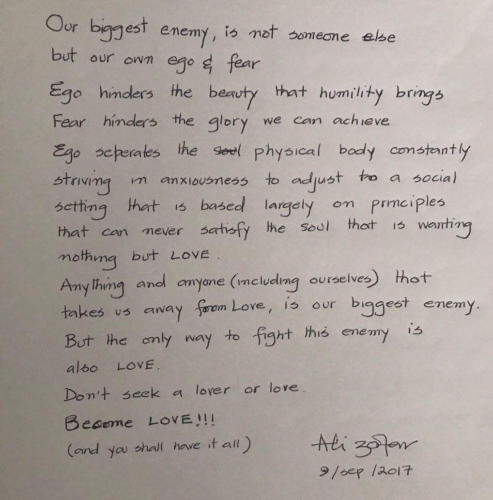 Our biggest enemy, is not someone else
but our own ego & fear
Ego hinders the beauty that humility brings
Fear hinders the glory we can achieve
Ego seperates the soul physical body constantly
striving in anxiousness to adjust to a social
setting that is based largely on principles
that can never satisfy the soul that is wanting
nothing but LOVE.
Anything and anyone (including ourselves) that
takes us away from Love, is our biggest enemy.
But the only way to fight this enemy is
also LOVE.
Don't seek a lover or love.
Become LOVE!!!
(and you shall have it all)
Ali Zafar
9/sep/2017